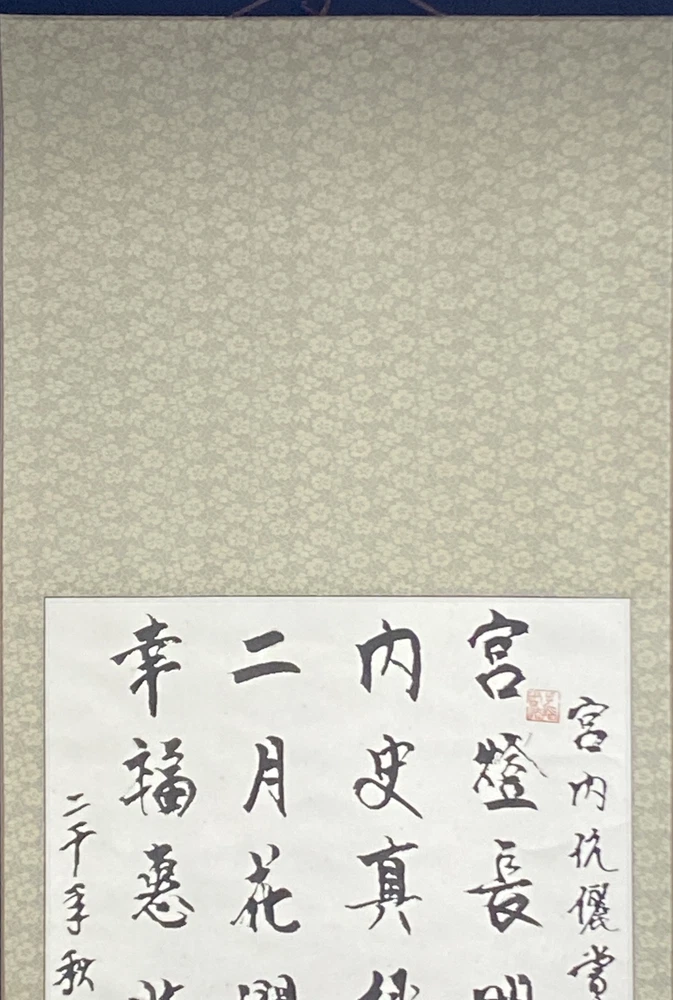 宮内伉儷嘗
宮燈長明
内史真
二月花開
幸福惠
二千年秋